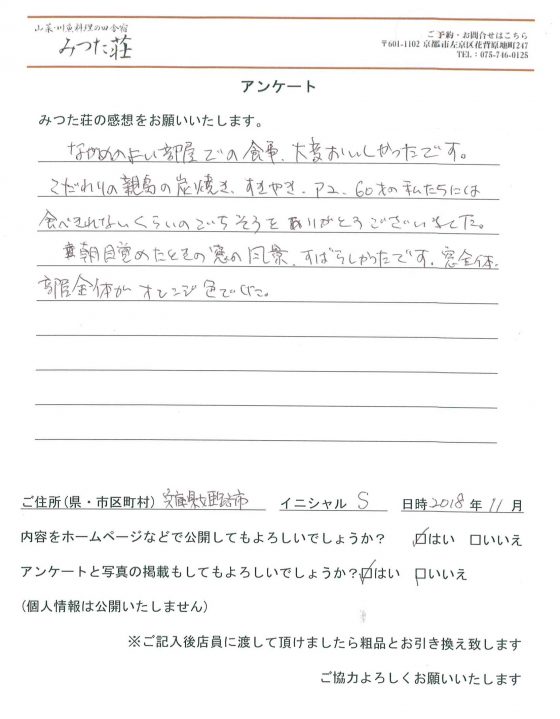 山菜・川魚料理の田舎宿
みつた荘
ご予約・お問合せはこちら
〒601-1102 京都市左京区花背原地町247
TEL：075-746-0125
アンケート
みつた荘の感想をお願いいたします。
ながめのよい部屋での食事、大変おいしかったです。
こだわりの親鳥の炭焼き、すきやき、P2、60才の私たちには
食べきれないくらいのごちそうをありがとうございました。
朝目覚めたときの窓の風景、すばらしかったです。窓全体、
部屋全体がオレンジ色でした。
ご住所(県・市区町村) 兵庫県 市 イニシャル S 日時2018年11月
内容をホームページなどで公開してもよろしいでしょうか？ ☑はい □いいえ
アンケートと写真の掲載もしてもよろしいでしょうか？☑はい □いいえ
(個人情報は公開いたしません)
※ご記入後店員に渡して頂けましたら粗品とお引き換え致します
ご協力よろしくお願いいたします